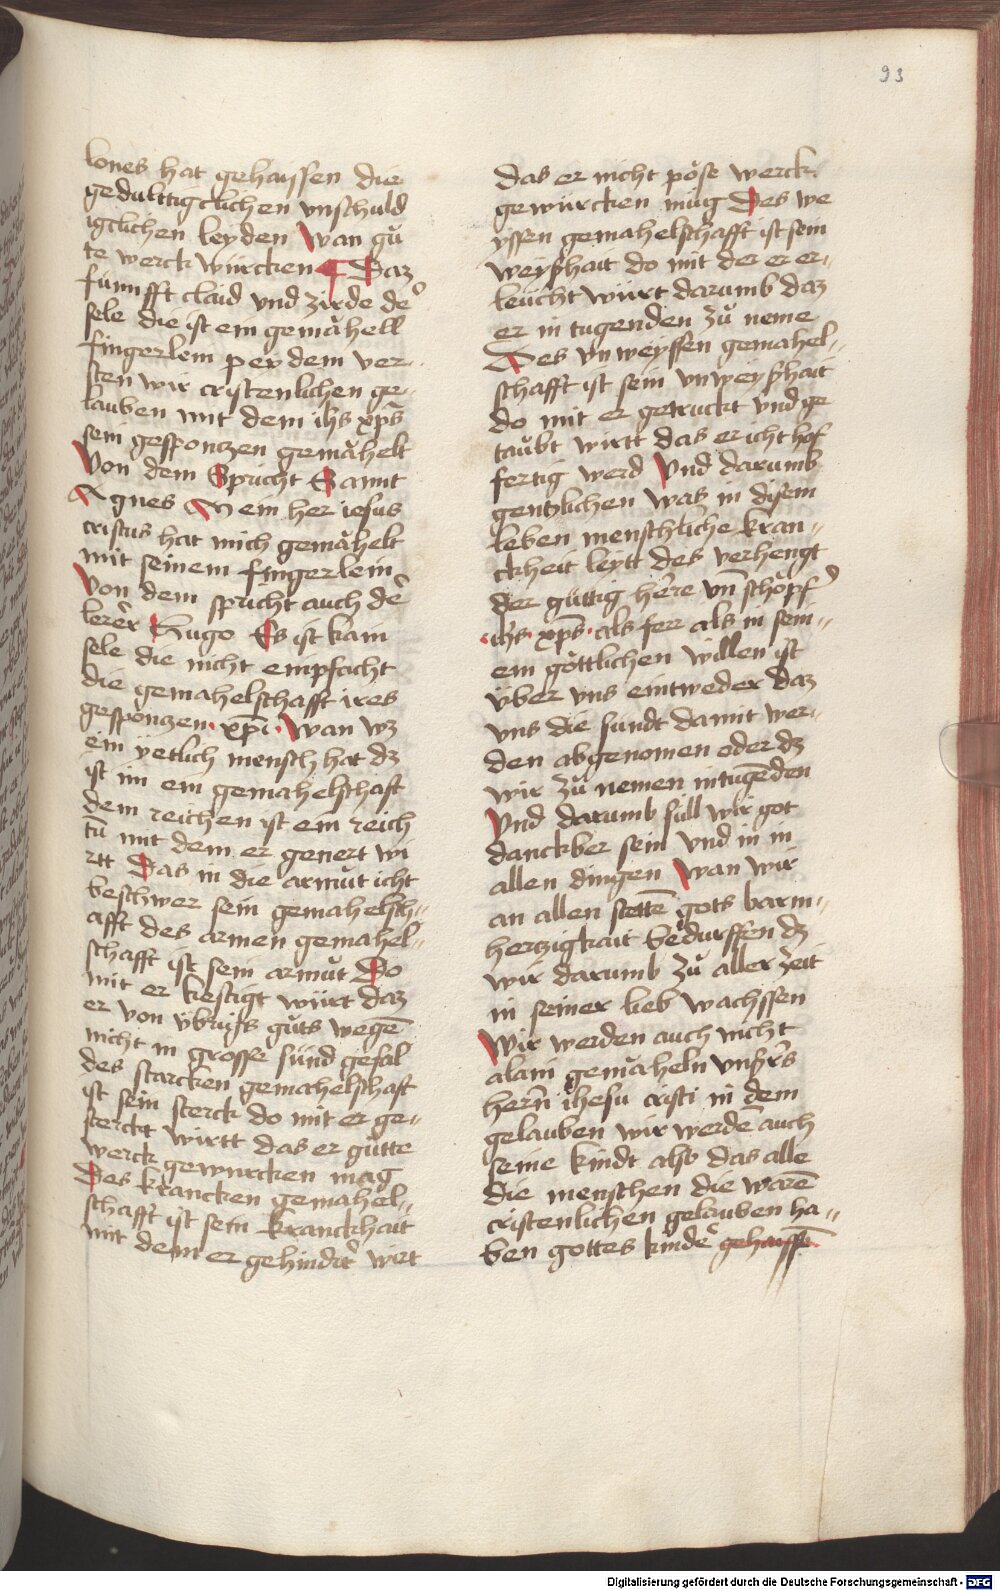 93
lones hat gehayssen die
gedulttigclichen vnschuld
igclichen leyden Wan gů
te werck würcken ¶ Daz
fünnfft claid vnd zirde der
sele die ist ein gemähell
fingerlein pey dem ver-
sten wir cristenlichen ge-
lauben mit dem ihs xp̄s
sein gesponczen gemähelt
Von dem Spricht Sannt
Agnes Mein her iesus
cristus hat mich gemähelt
mit seinem fingerlein
Von dem spricht auch de᷑
lerer᷑ Hugo Es ist kain
sele die nicht empfacht
die gemahelschafft ires
gesponczen · xp̄i · Wan wz
ein yetlich mensch hat dz
ist im ein gemahelschaft
dem reichen ist ein reich
tū mit dem er genert wi
rtt Das in die armůt icht
beschwer sein gemahelsch-
afft des armen gemahel-
schafft ist sein armůt Do
mit er kestigt würt daz
er von übrigs gůts wegē
nicht in grosse sünd gefal
des starcken gemahelschaft
ist sein sterck do mit er ge-
sterckt wirtt das er gůtte
werck gewurcken mag
Des krancken gemahel-
schafft ist sein kranckhait
mit dem er gehindert wirt
das er nicht pöse werck
gewürcken müg Des we
yssen gemahelschafft ist sein
weyßhait do mit der er er-
leücht würt darumb daz
er in tugenden zů neme
Des vnweyssen gemahel-
schafft ist sein vnweyßhait
do mit er getruckt vnd ge
taübt wirtt das er icht hof
fertig werd Vnd darumb
gentzlichen was in disem
leben menschliche kran-
ckheit leytt des verhengt
der güttig herre vn̄ schöpfer
· ihs · xp̄s · als ferr als in sein-
em göttlichen willen ist
über vns eintweder daz
vns die sundt damit wer-
den abgenomen oder dz
wir zů nemen in tugēden
Vnd darumb süll wir got
danckber sein vnd in in
allen dingen Wan wir
an allen stettē gots barm-
herczigkait bedurffen dz
wir darumb zů aller zeit
in seiner lieb wachssen
Wir werden auch nicht
alain gemäheln vnsers
hern̄ ihesu cristi in dem
gelauben wir werdē auch
seine kindt also das alle
die menschen die warē
cristenlichen gelauben ha-
ben gottes kinde gehayssē
Digitalisierung gefördert durch die Deutsche Forschungsgemeinschaft - DFG